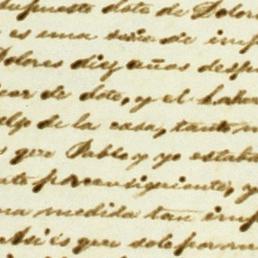 supuesto dote de Dolores
es una serie de inf
Dolores diez años despu
de dote, y el haber
de la casa, tanto
que Pablo y yo estaba
por consiguiente, y
na medida tan im
Asi es que solo por